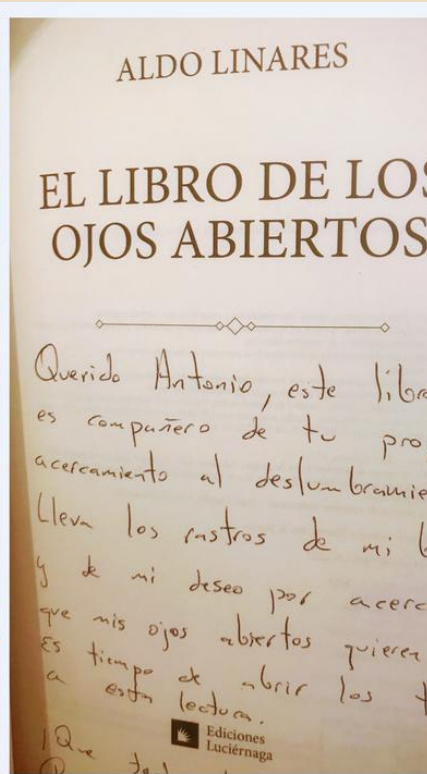 ALDO LINARES
EL LIBRO DE LOS
OJOS ABIERTOS
Querido Antonio, este libro
es compañero de tu
acercamiento al
Lleva los rastros de mi
y de mi deseo por
que mis ojos abiertos quieren
Es tiempo de abrir los
a esta lectura.
Ediciones
Luciérnaga
¡Que